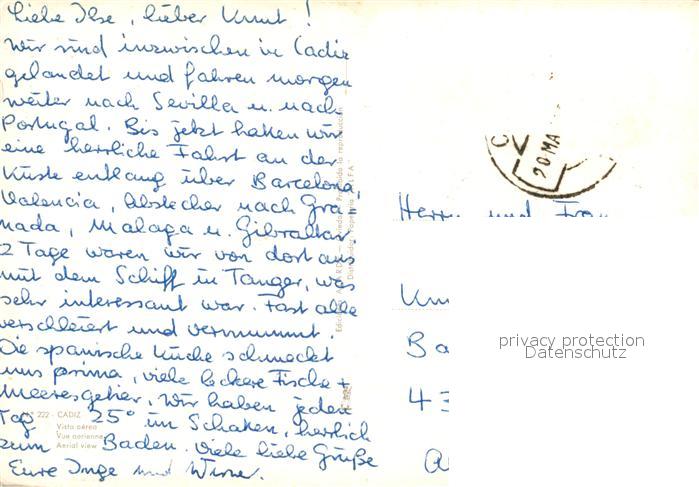 Liebe Ilse, lieber Knut!
Wir sind inzwischen in Cadiz
gelandet und fahren morgen
weiter nach Sevilla u. nach
Portugal. Bis jetzt hatten wir
eine herrliche Fahrt an der
Küste entlang über Barcelona,
Valencia, Abstecher nach Gra=
nada, Malaga u. Gibraltar
2 Tage waren wir von dort aus
mit dem Schiff in Tanger, was
sehr interessant war. Fast alle
verschleiert und vermummt.
Die spanische Küche schmeckt
uns prima, viele leckere Fische +
Meeresgetier. Wir haben jeden
Tag 25° im Schatten, herrlich
zum Baden. Viele liebe Grüße
Eure Inge und Werner.
222 - CADIZ
Vista aérea
Vue aerienne
Aerial view
Prohibida la reproducción
20 MA
Herrn und Frau
Knu
Ba
43
privacy protection
Datenschutz